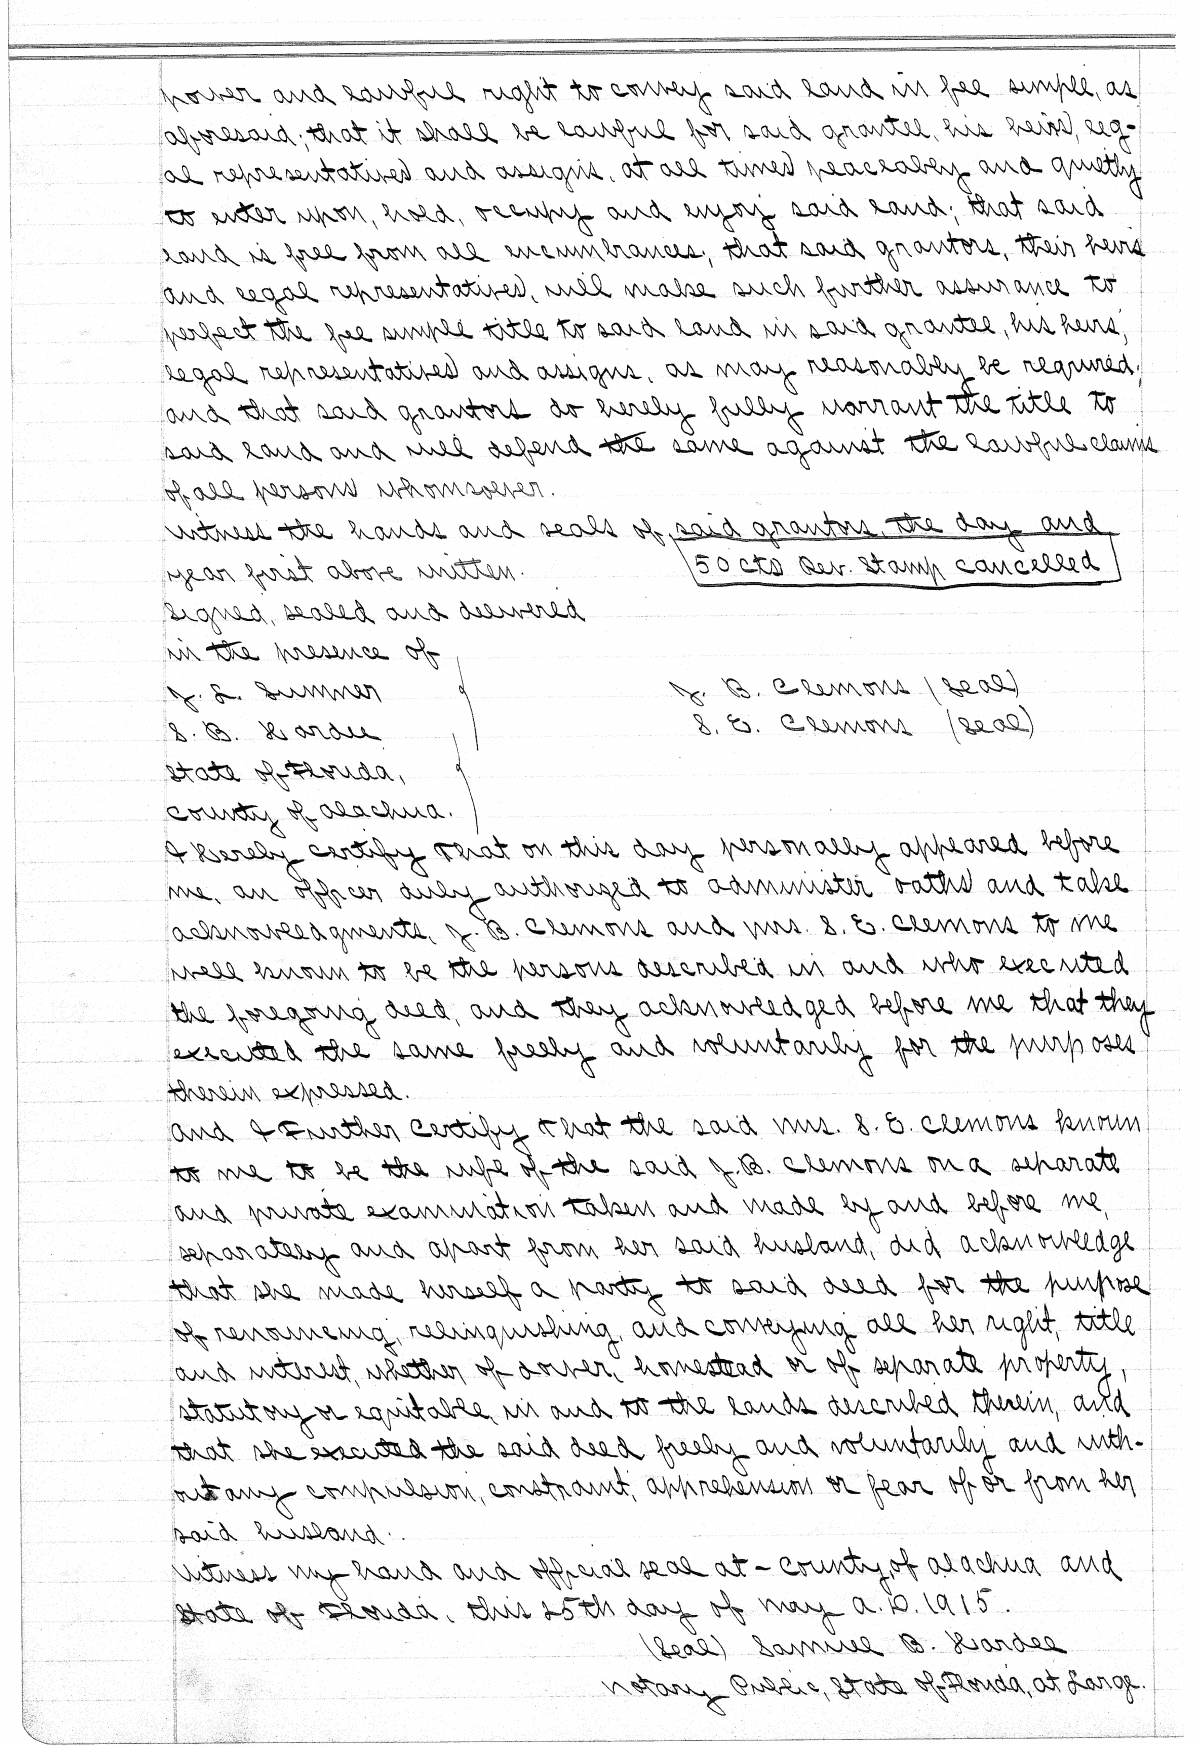 power and lawful right to convey said land in fee simple, as
aforesaid; that it shall be lawful for said grantee, his heirs, leg-
al representatives and assigns, at all times peaceably and quietly
to enter upon, hold, occupy and enjoy said land; that said
land is free from all encumbrances; that said grantors, their heirs
and legal representatives, will make such further assurance to
perfect the fee simple title to said land in said grantee, his heirs,
legal representatives and assigns, as may reasonably be required;
and that said grantors do hereby fully warrant the title to
said land and will defend the same against the lawful claims
of all persons whomsoever.
Witness the hands and seals of said grantors, the day and
year first above written. 50 cts Rev. Stamp cancelled
Signed, sealed and delivered
in the presence of
J. L. Sumner J. B. Clemons (Seal)
S. B. Hardee S. E. Clemons (Seal)
State of Florida,
County of Alachua.
I Hereby Certify That on this day personally appeared before
me, an officer duly authorized to administer oaths and take
acknowledgments, J. B. Clemons and Mrs. S. E. Clemons to me
well known to be the persons described in and who executed
the foregoing deed, and they acknowledged before me that they
executed the same freely and voluntarily for the purposes
therein expressed.
And I Further Certify That the said Mrs. S. E. Clemons known
to me to be the wife of the said J. B. Clemons on a separate
and private examination taken and made by and before me,
separately and apart from her said husband, did acknowledge
that she made herself a party to said deed for the purpose
of renouncing, relinquishing, and conveying all her right, title
and interest, whether of dower, homestead or of separate property,
statutory or equitable, in and to the lands described therein, and
that she executed the said deed freely and voluntarily and with-
out any compulsion, constraint, apprehension or fear of or from her
said husband.
Witness my hand and official seal at - County, of Alachua and
State of Florida, this 25th day of May A.D. 1915.
(Seal) Samuel B. Hardee
Notary Public, State of Florida, at Large.